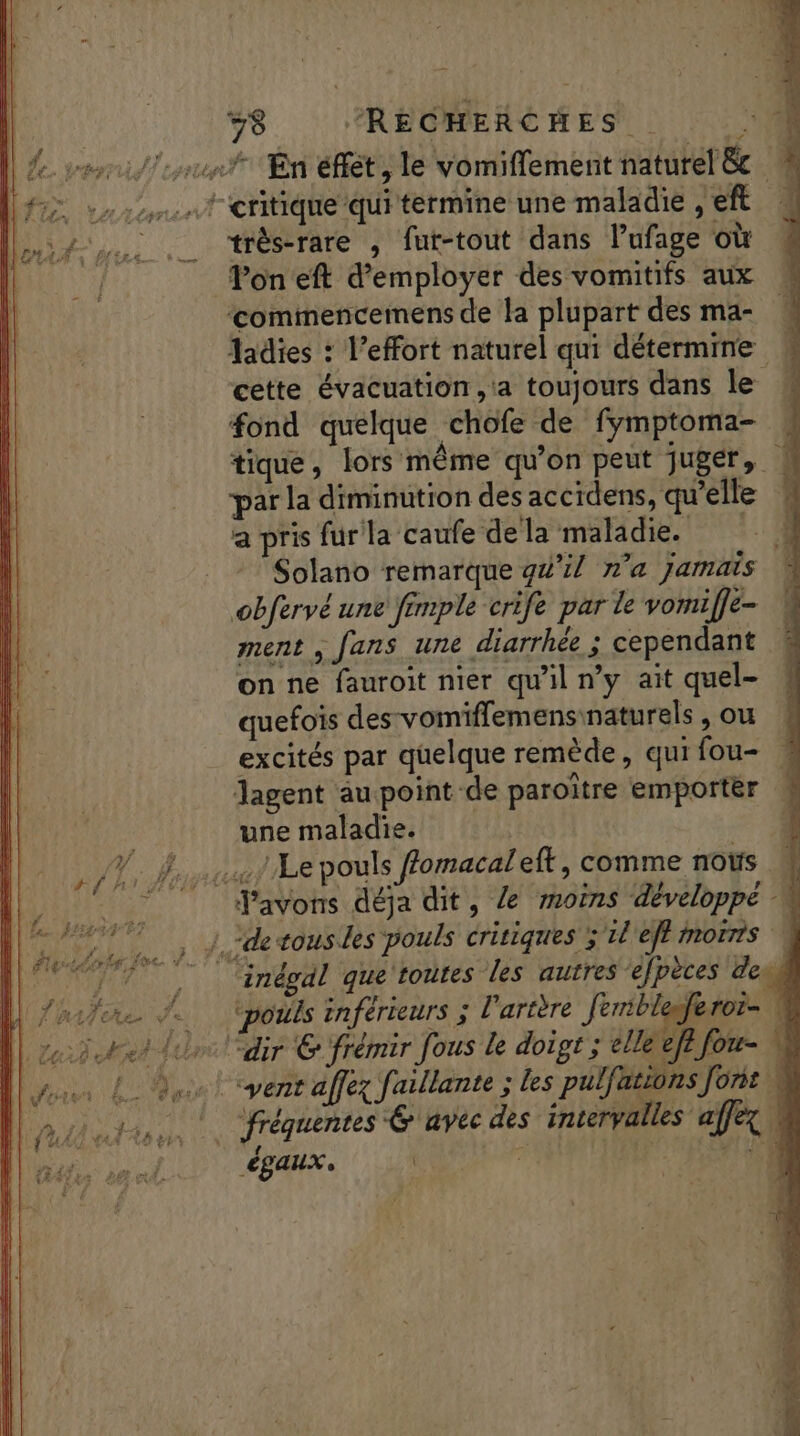 78 RECHERCHES
En effet, le vomiſſement naturel &
critique qui termine une maladie, eſt
très-rare, ſur-tout dans l'uſage où
l'on eſt d'employer des vomitifs aux
commencemens de la plupart des ma-
ladies : l'effort naturel qui détermine
cette évacuation, a toujours dans le
fond quelque choſe de ſymptoma-
tique, lors même qu'on peut juger,
par la diminution des accidens, qu'elle
a pris ſur la cauſe de la maladie.
Solano remarque qu'il n'a jamais
obſervé une ſimple criſe par le vomiſſe-
ment, ſans une diarrhée ; cependant
on ne ſauroit nier qu'il n'y ait quel-
quefois des vomiſſemens naturels, ou
excités par quelque remède, qui ſou-
lagent au point de paroître emporter
une maladie.
Le pouls ſtomacal eſt, comme nous
l'avons déja dit, le moins développé
de tous les pouls critiques ; il eſt moins
inégal que toutes les autres eſpèces de
pouls inférieurs ; l'artère ſemble ſe roi-
dir & frémir ſous le doigt ; elle eſt ſou-
vent aſſez ſaillante ; les pulſations ſont
fréquentes & avec des intervalles aſſez
égaux.